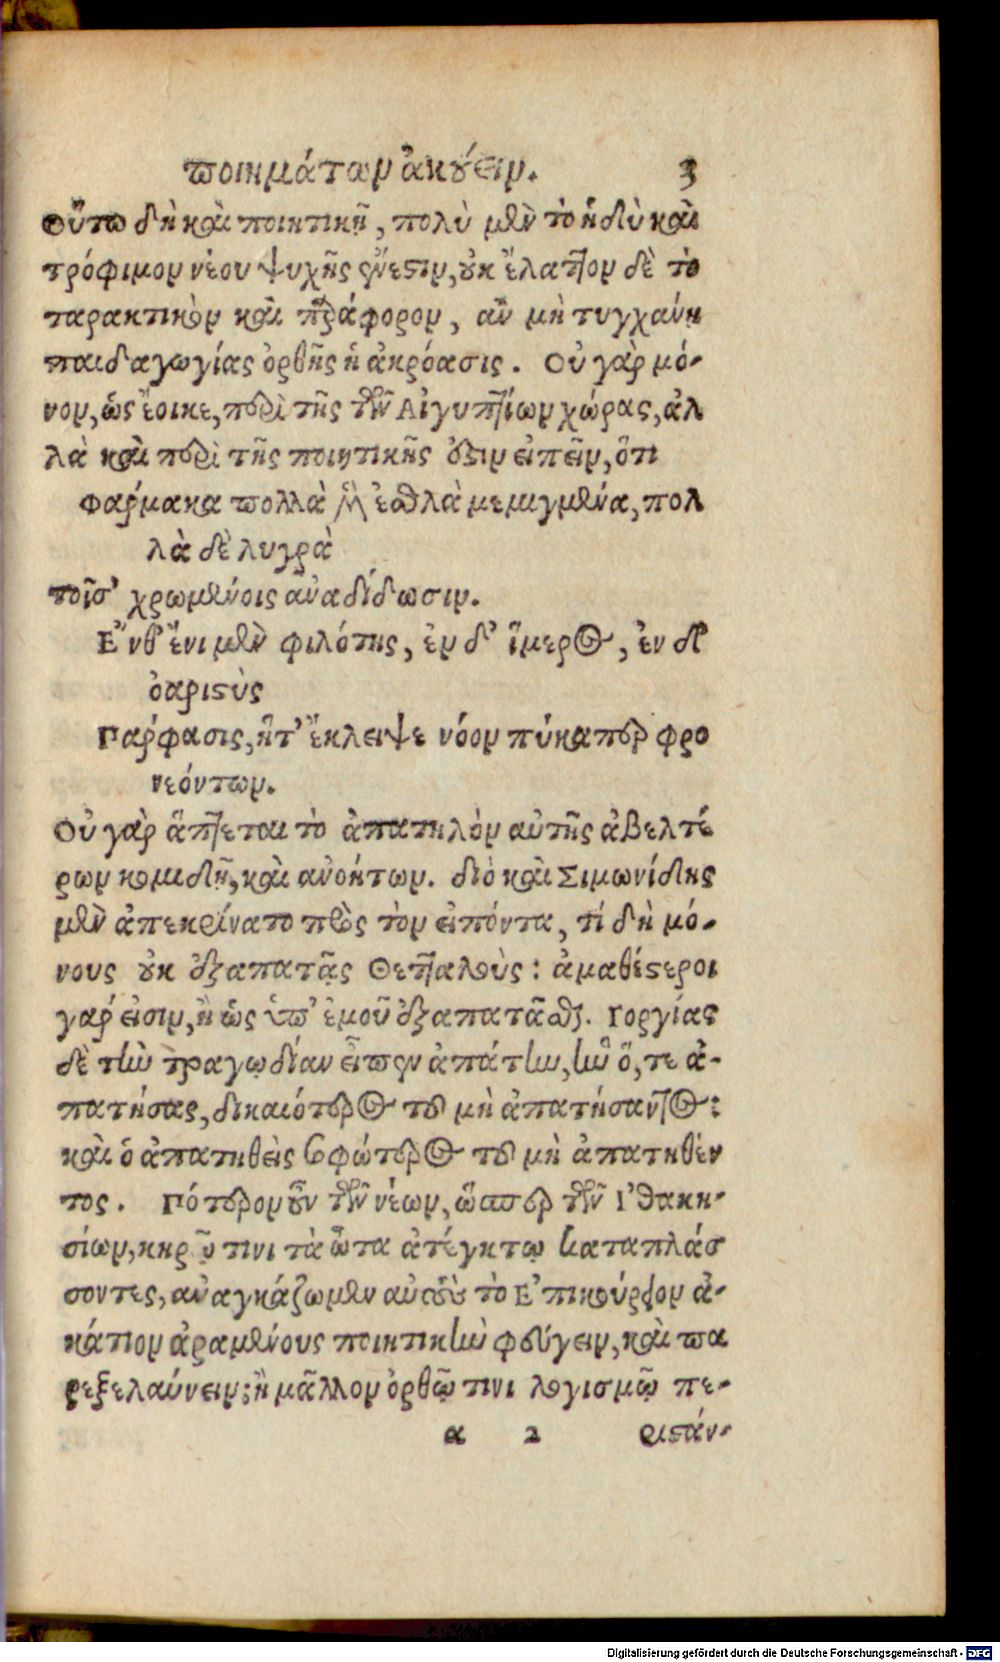 ποιημάτων ἀκούειν. 3
Οὕτω δὴ καὶ ποιητικῇ, πολὺ μὲν τὸ ἡδὺ καὶ
τρόφιμον νέου ψυχῆς ἔνεστιν, οὐκ ἔλαττον δὲ τὸ
ταρακτικὸν καὶ παράφορον, ἂν μὴ τυγχάνῃ
παιδαγωγίας ὀρθῆς ἡ ἀκρόασις. Οὐ γὰρ μό-
νον, ὡς ἔοικε, περὶ τῆς τῶν Αἰγυπτίων χώρας, ἀλ
λὰ καὶ περὶ τῆς ποιητικῆς ἔστιν εἰπεῖν, ὅτι
Φάρμακα πολλὰ μὲν ἐσθλὰ μεμιγμένα, πολ
λὰ δὲ λυγρὰ
τοῖσ' χρωμένοις ἀναδίδωσιν.
Ἔνθ' ἔνι μὲν φιλότης, ἐν δ' ἵμερος, ἐν δ'
ὀαριστὺς
Πάρφασις, ἥτ' ἔκλειψε νόον πύκα περ φρο
νεόντων.
Οὐ γὰρ ἅπτεται τὸ ἀπατηλὸν αὐτῆς ἀβελτέ
ρων κομιδῇ, καὶ ἀνοήτων. διὸ καὶ Σιμωνίδης
μὲν ἀπεκρίνατο πρὸς τὸν εἰπόντα, τί δὴ μό-
νους οὐκ ἐξαπατᾷς Θετταλούς: ἀμαθέστεροι
γάρ εἰσιν, ἢ ὡς ὑπ' ἐμοῦ ἐξαπατᾶσθαι. Γοργίας
δὲ τὴν τραγῳδίαν εἶπεν ἀπάτην, ἣν ὅ, τε ἀ-
πατήσας, δικαιότερος τοῦ μὴ ἀπατήσαντος:
καὶ ὁ ἀπατηθεὶς σοφώτερος τοῦ μὴ ἀπατηθέν
τος. Πότερον οὖν τῶν νέων, ὥσπερ τῶν Ἰθακη-
σίων, κηρῷ τινι τὰ ὦτα ἀτέγκτῳ καταπλάσ
σοντες, ἀναγκάζωμεν αὐτοὺς τὸ Ἐπικούρειον ἀ-
κάτιον ἀραμένους ποιητικὴν φεύγειν, καὶ πα
ρεξελαύνειν; ἢ μᾶλλον ὀρθῷ τινι λογισμῷ πε-
a 2 ριστάν-
Digitalisierung gefördert durch die Deutsche Forschungsgemeinschaft - DFG